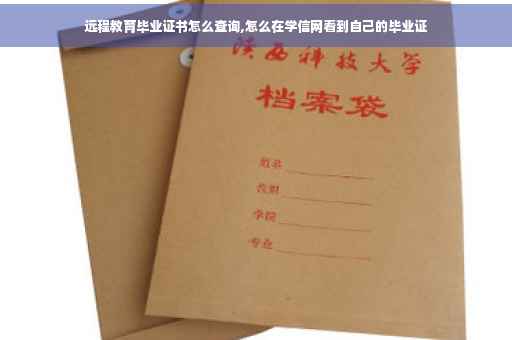 远程教育毕业证书怎么查询,怎么在学信网看到自己的毕业证
陕西科技大学
档案袋
姓名
学院
专业